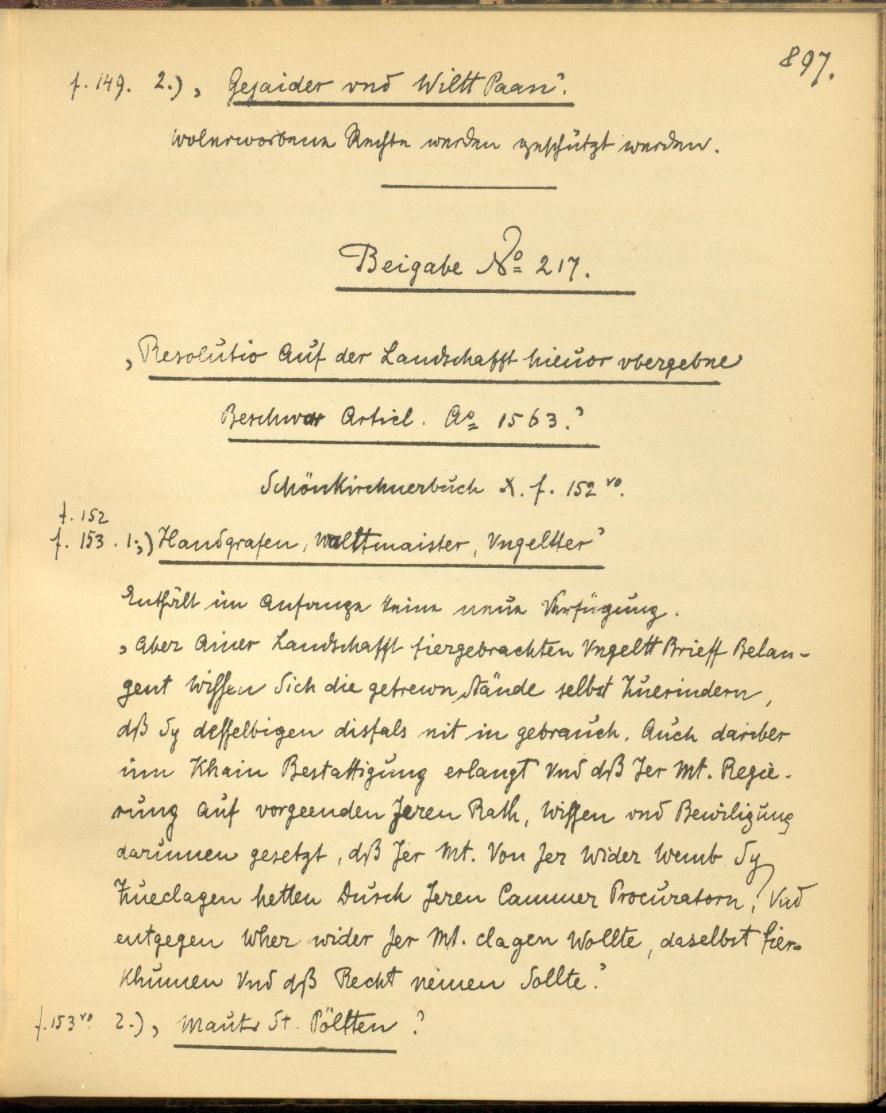 897.
f. 149. 2.) „Gejaider vnd Wiltt Paan“.
wolerworbene Rechte werden geschützt werden.
Beigabe No 217.
„Resolutio Auf der Landschafft hieuor vbergebne
Beschwar Articl. Ao 1563.“
Schönkirchnerbuch X. f. 152 vo.
f. 152
f. 153. 1.) Handgrafen, Walttmaister, Vngeltter“
Enthält im Anfange keine neue Verfügung.
„Aber Ainer Landschafft fiergebrachten Vngeltt Brieff Belan-
gent Wissen Sich die getrewn Stände selbst Zuerindern,
dß Sy desselbigen disfals nit in gebrauch. Auch dariber
inn Khain Bestattigung erlangt Vnd dß Jer Mt. Regie-
rung Auf vorgeenden Jeren Rath, Wissen vnd Bewiligung
darinnen gesetzt, dß Jer Mt. Von Jer Wider Wemb Sy
Zueclagen hetten Durch Jeren Cammer Procuratorn, Vnd
entgegen Wher wider Jer Mt. clagen Wollte, daselbst fier-
Khumen Vnd dß Recht nemen Sollte.“
f. 153 vo. 2.) „Maut St. Pöltten“